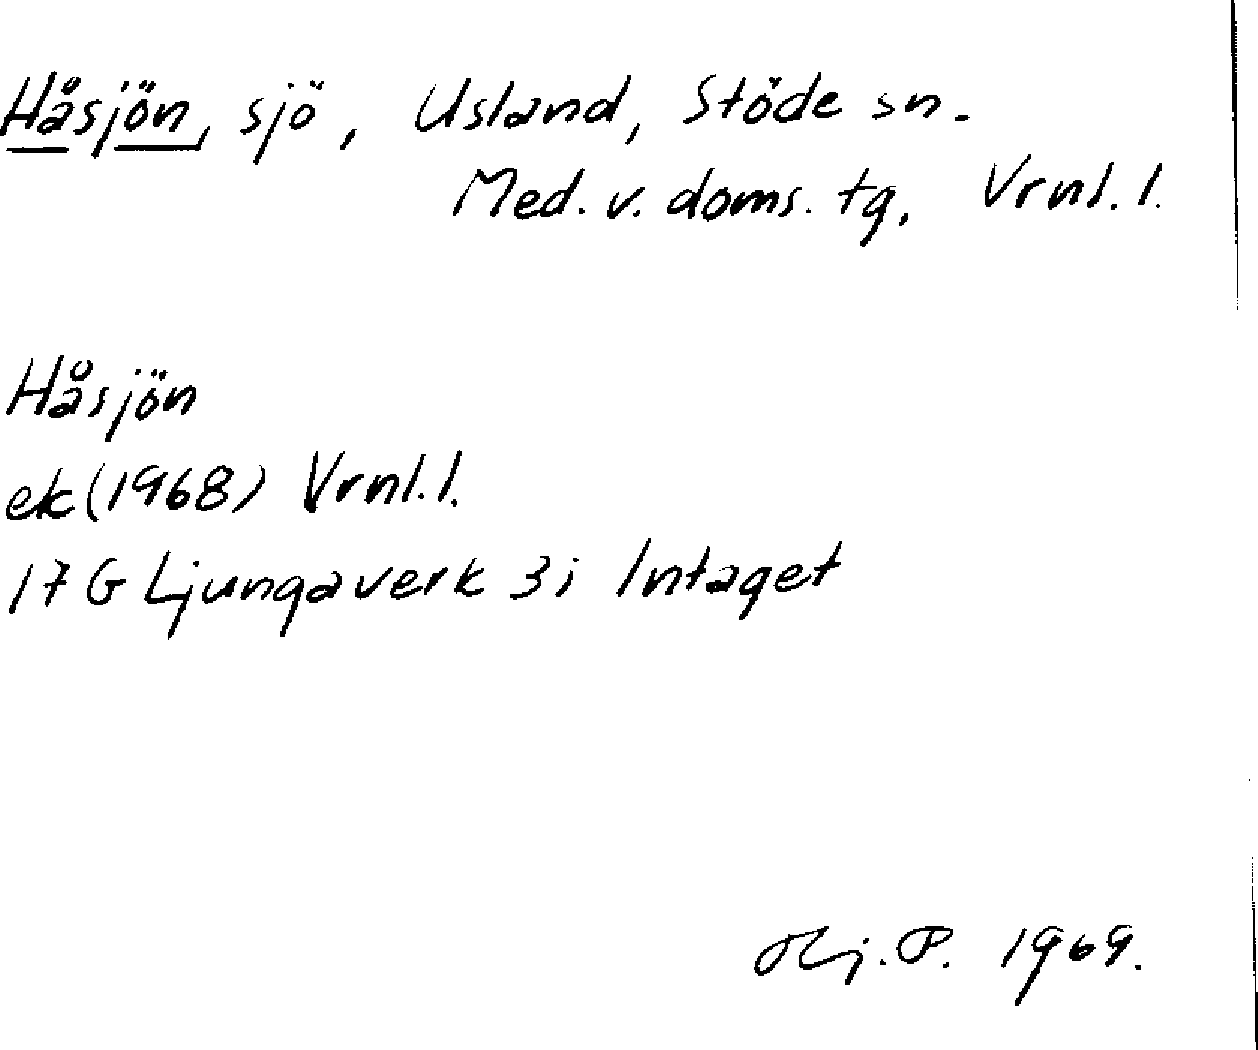 Håsjön, sjö, Usland, Stöde sn.
Med. v. doms. tg, Vrnl. l.
Håsjön
ek (1968) Vrnl. l.
17 G Ljungaverk 3i Intaget
Hj. P. 1969.